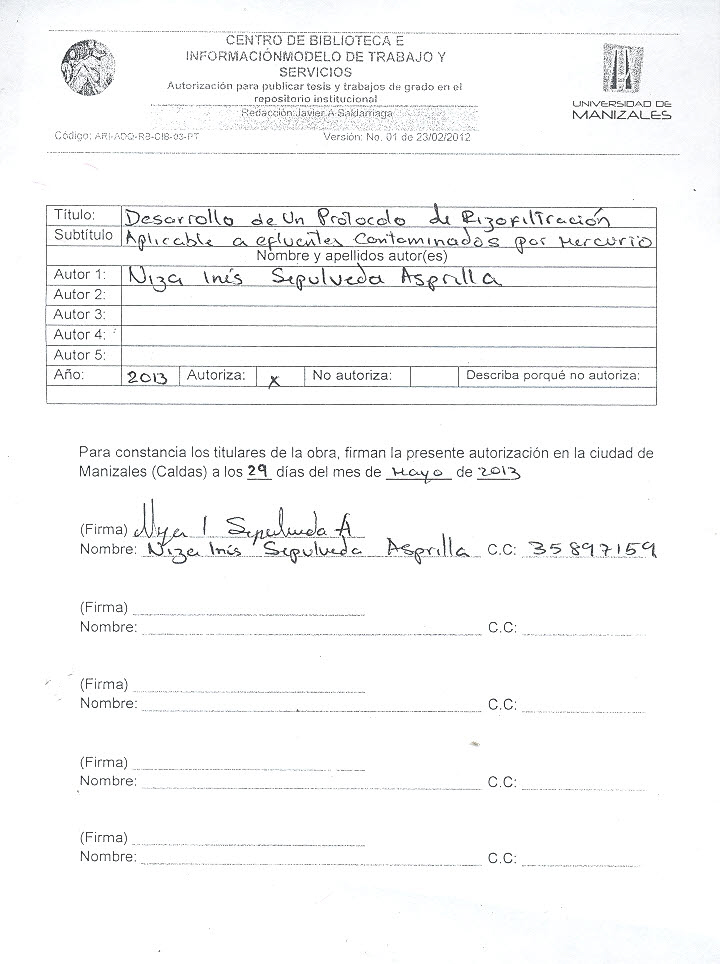 CENTRO DE BIBLIOTECA E
INFORMACIÓNMODELO DE TRABAJO Y
SERVICIOS
Autorización para publicar tesis y trabajos de grado en el
repositorio institucional
Redacción: Javier A Saldarriaga
Código: ARI-ADQ-RB-CIB-03-PT Versión: No. 01 de 23/02/2012
UNIVERSIDAD DE
MANIZALES
Título: Desarrollo de Un Protocolo de Rizofiltración
Subtítulo Aplicable a efluentes Contaminados por Mercurio
Nombre y apellidos autor(es)
Autor 1: Niza Inés Sepulveda Asprilla
Autor 2:
Autor 3:
Autor 4:
Autor 5:
Año: 2013 Autoriza: X No autoriza: Describa porqué no autoriza:
Para constancia los titulares de la obra, firman la presente autorización en la ciudad de
Manizales (Caldas) a los 29 días del mes de Mayo de 2013
(Firma) I Sepulveda A
Nombre: Niza Inés Sepulveda Asprilla C.C: 35897159
(Firma)
Nombre: C.C:
(Firma)
Nombre: C.C:
(Firma)
Nombre: C.C:
(Firma)
Nombre: C.C: